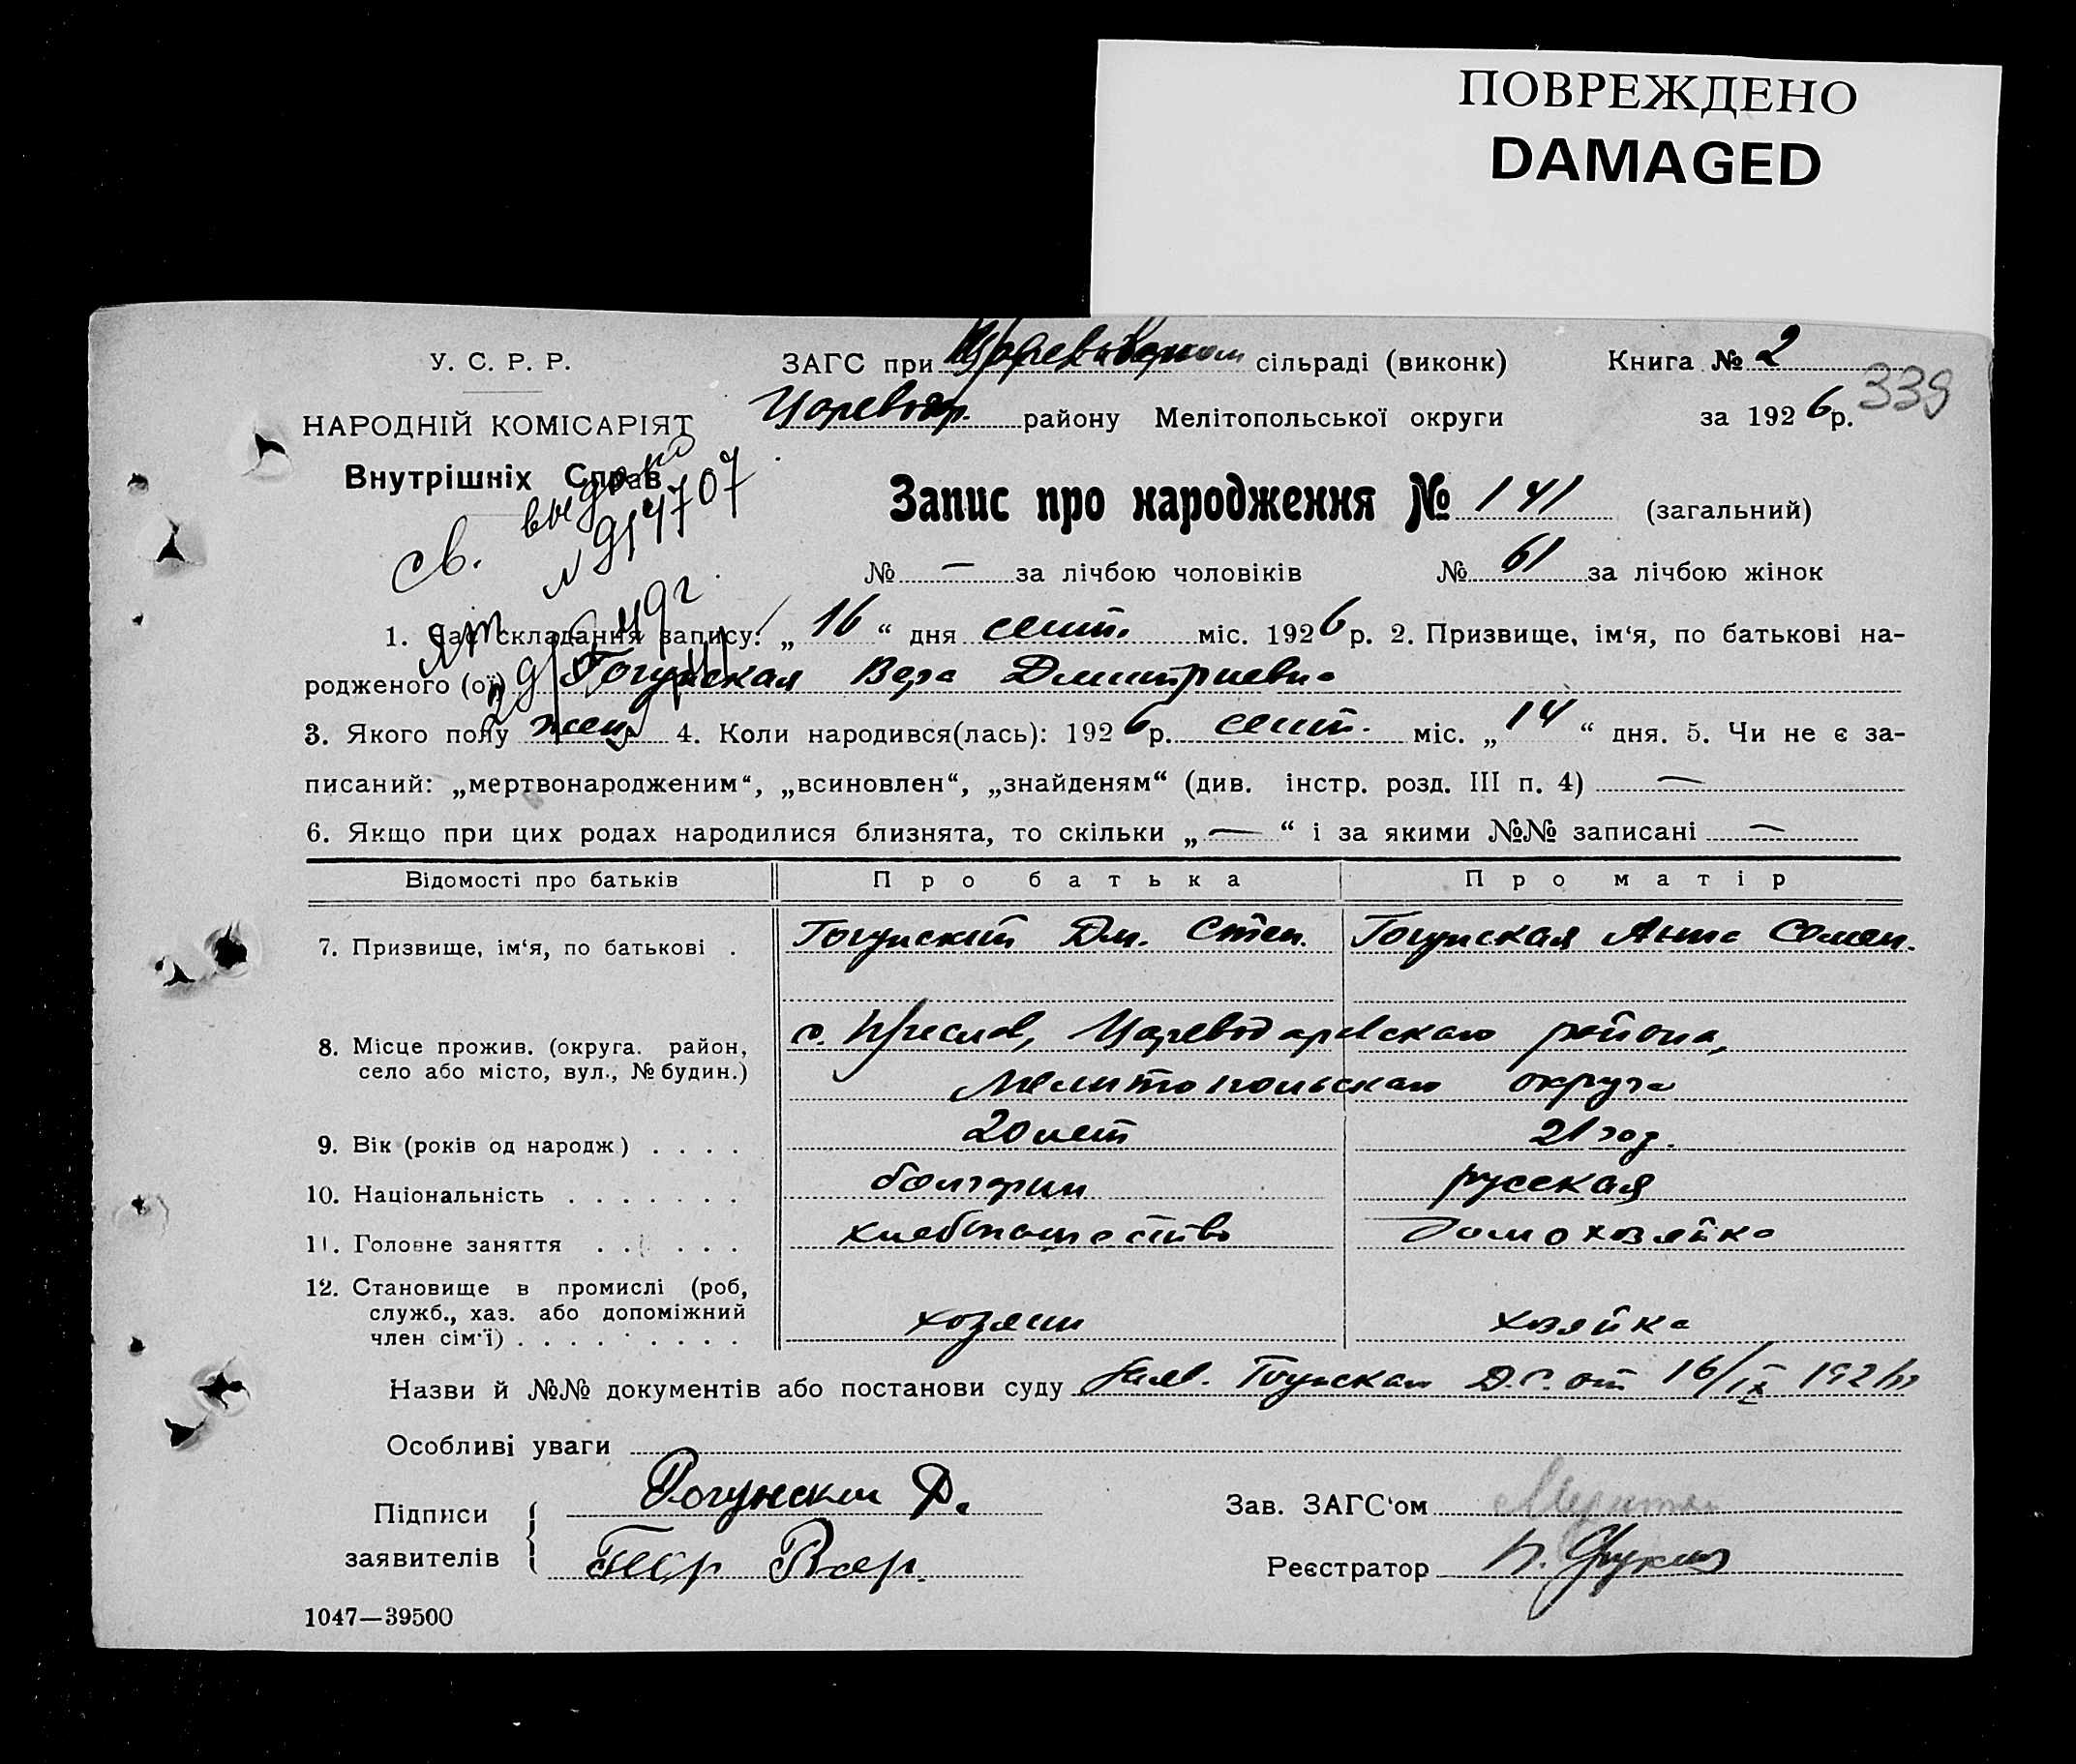 ПОВРЕЖДЕНО
DAMAGED
У. С. Р. Р.
ЗАГС при сільраді (виконк)
Книга № 2
339
НАРОДНІЙ КОМІСАРІЯТ
Царевод. району Мелітопольської округи
за 1926 р.
Внутрішніх Справ
св. выдано
Запис про народження № 141 (загальний)
№ — за лічбою чоловіків № 61 за лічбою жінок
1. Час складання запису: „ 16 “ дня сент. міс. 1926 р. 2. Призвище, ім‘я, по батькові на-
родженого (ої) Гогунская Вера Дмитриевна
3. Якого полу жен 4. Коли народився(лась): 1926 р. сент. міс. „ 14 “ дня. 5. Чи не є за-
писаний: „мертвонародженим“, „всиновлен“, „знайденям“ (див. інстр. розд. III п. 4) —
6. Якщо при цих родах народилися близнята, то скільки „ — “ і за якими №№ записані —
Відомості про батьків Про батька Про матір
7. Призвище, ім‘я, по батькові . Гогунский Дм. Степ. Гогунская Анна Семен.
8. Місце прожив. (округа. район, с. Преслав, Цареводаровскаго района,
село або місто, вул., № будин.)
Мелитопольскаго округа
9. Вік (років од народж) . . . . 20 лет 21 год.
10. Національність . . . . . . . болгарин русская
11. Головне заняття . . . . . . хлебопашество домохозяйка
12. Становище в промислі (роб,
служб., хаз. або допоміжний
член сім‘ї) . . . . . . . . . хозяин хозяйка
Назви й №№ документів або постанови суду Заяв. Гогунскаго Д. С. от 16/IX 1926 г.
Особливі уваги
Підписи Гогунский Д.
заявителів
Зав. ЗАГС‘ом
Реєстратор
1047—39500